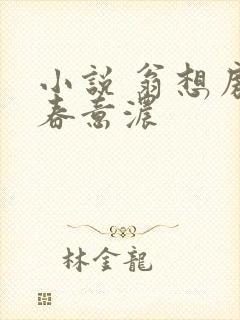 小說 翁想
春意濃
林金龍